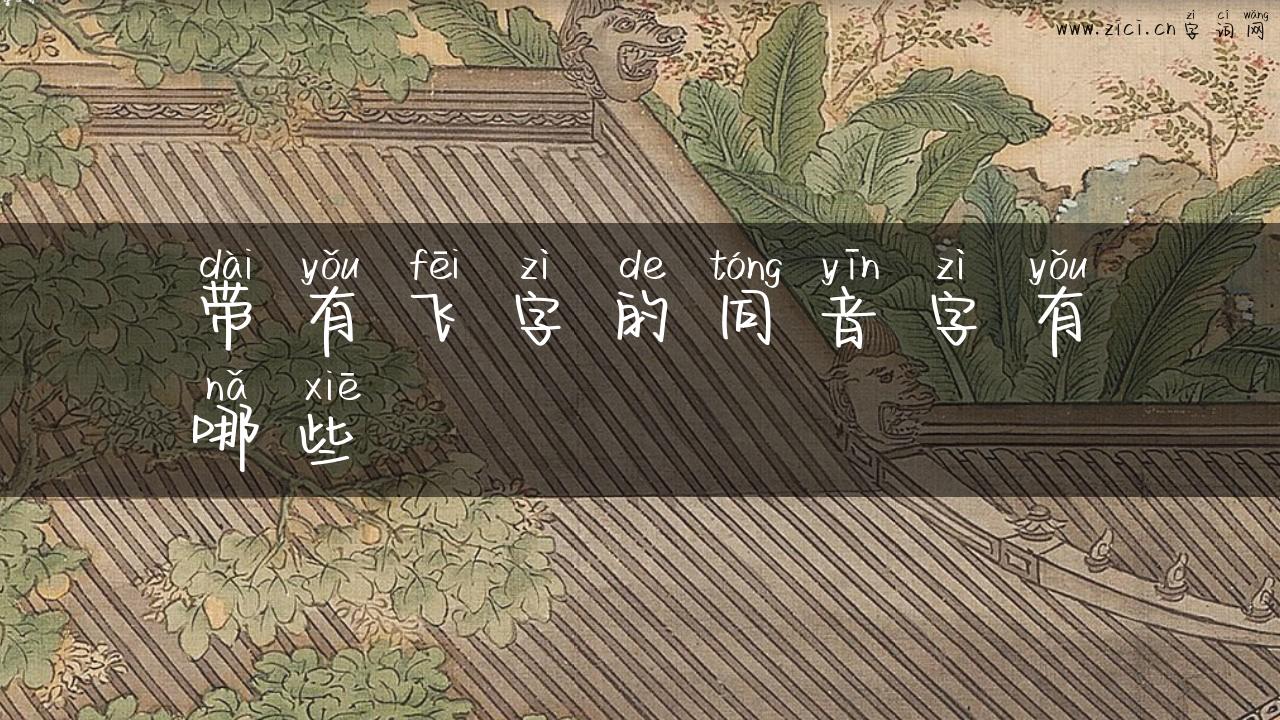 zì cí wǎng
www.zici.cn 字词网
dài yǒu fēi zì de tóng yīn zì yǒu
带有飞字的同音字有
nǎ xiē
哪些